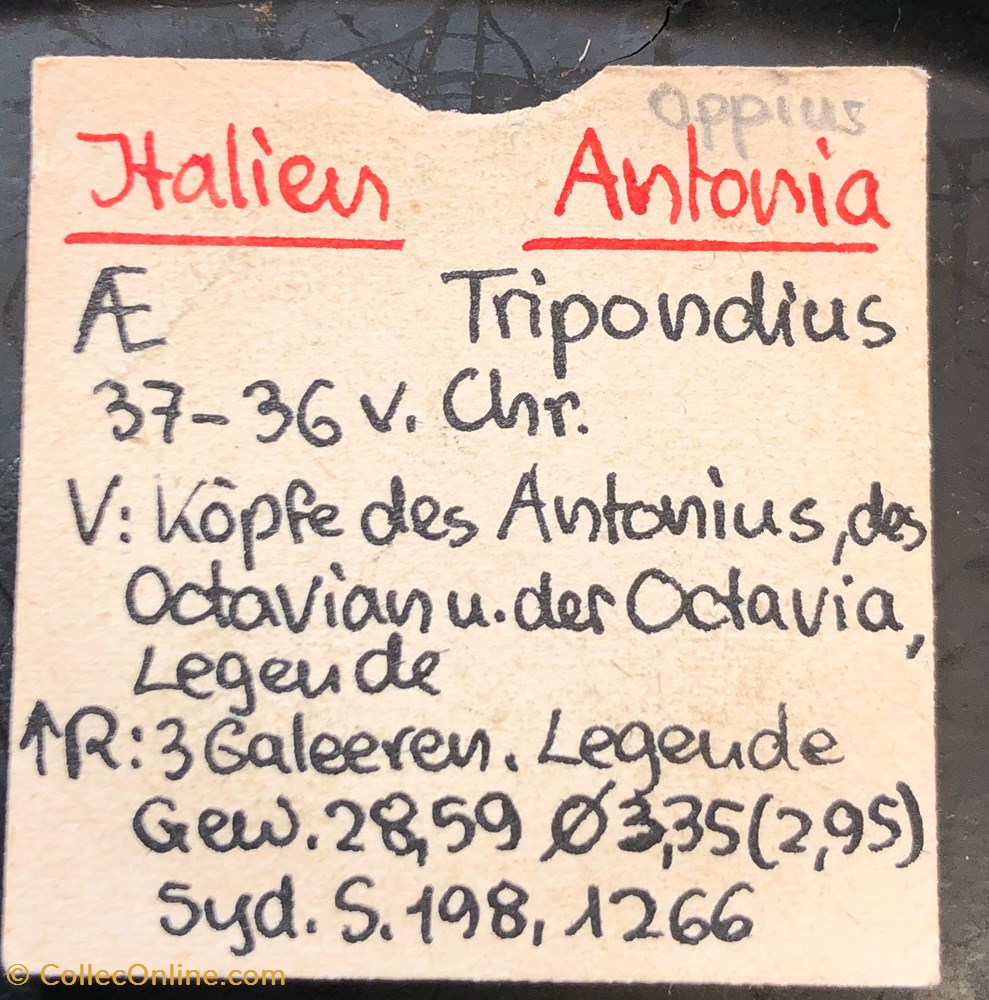 Oppius
Italien Antonia
Æ Tripondius
37-36 v. Chr.
V: Köpfe des Antonius, des
Octavian u. der Octavia,
Legende
↑R: 3 Galeeren. Legende
Gew. 28,59 Ø 3,35 (2,95)
Syd. S. 198, 1266
© CollecOnline.com